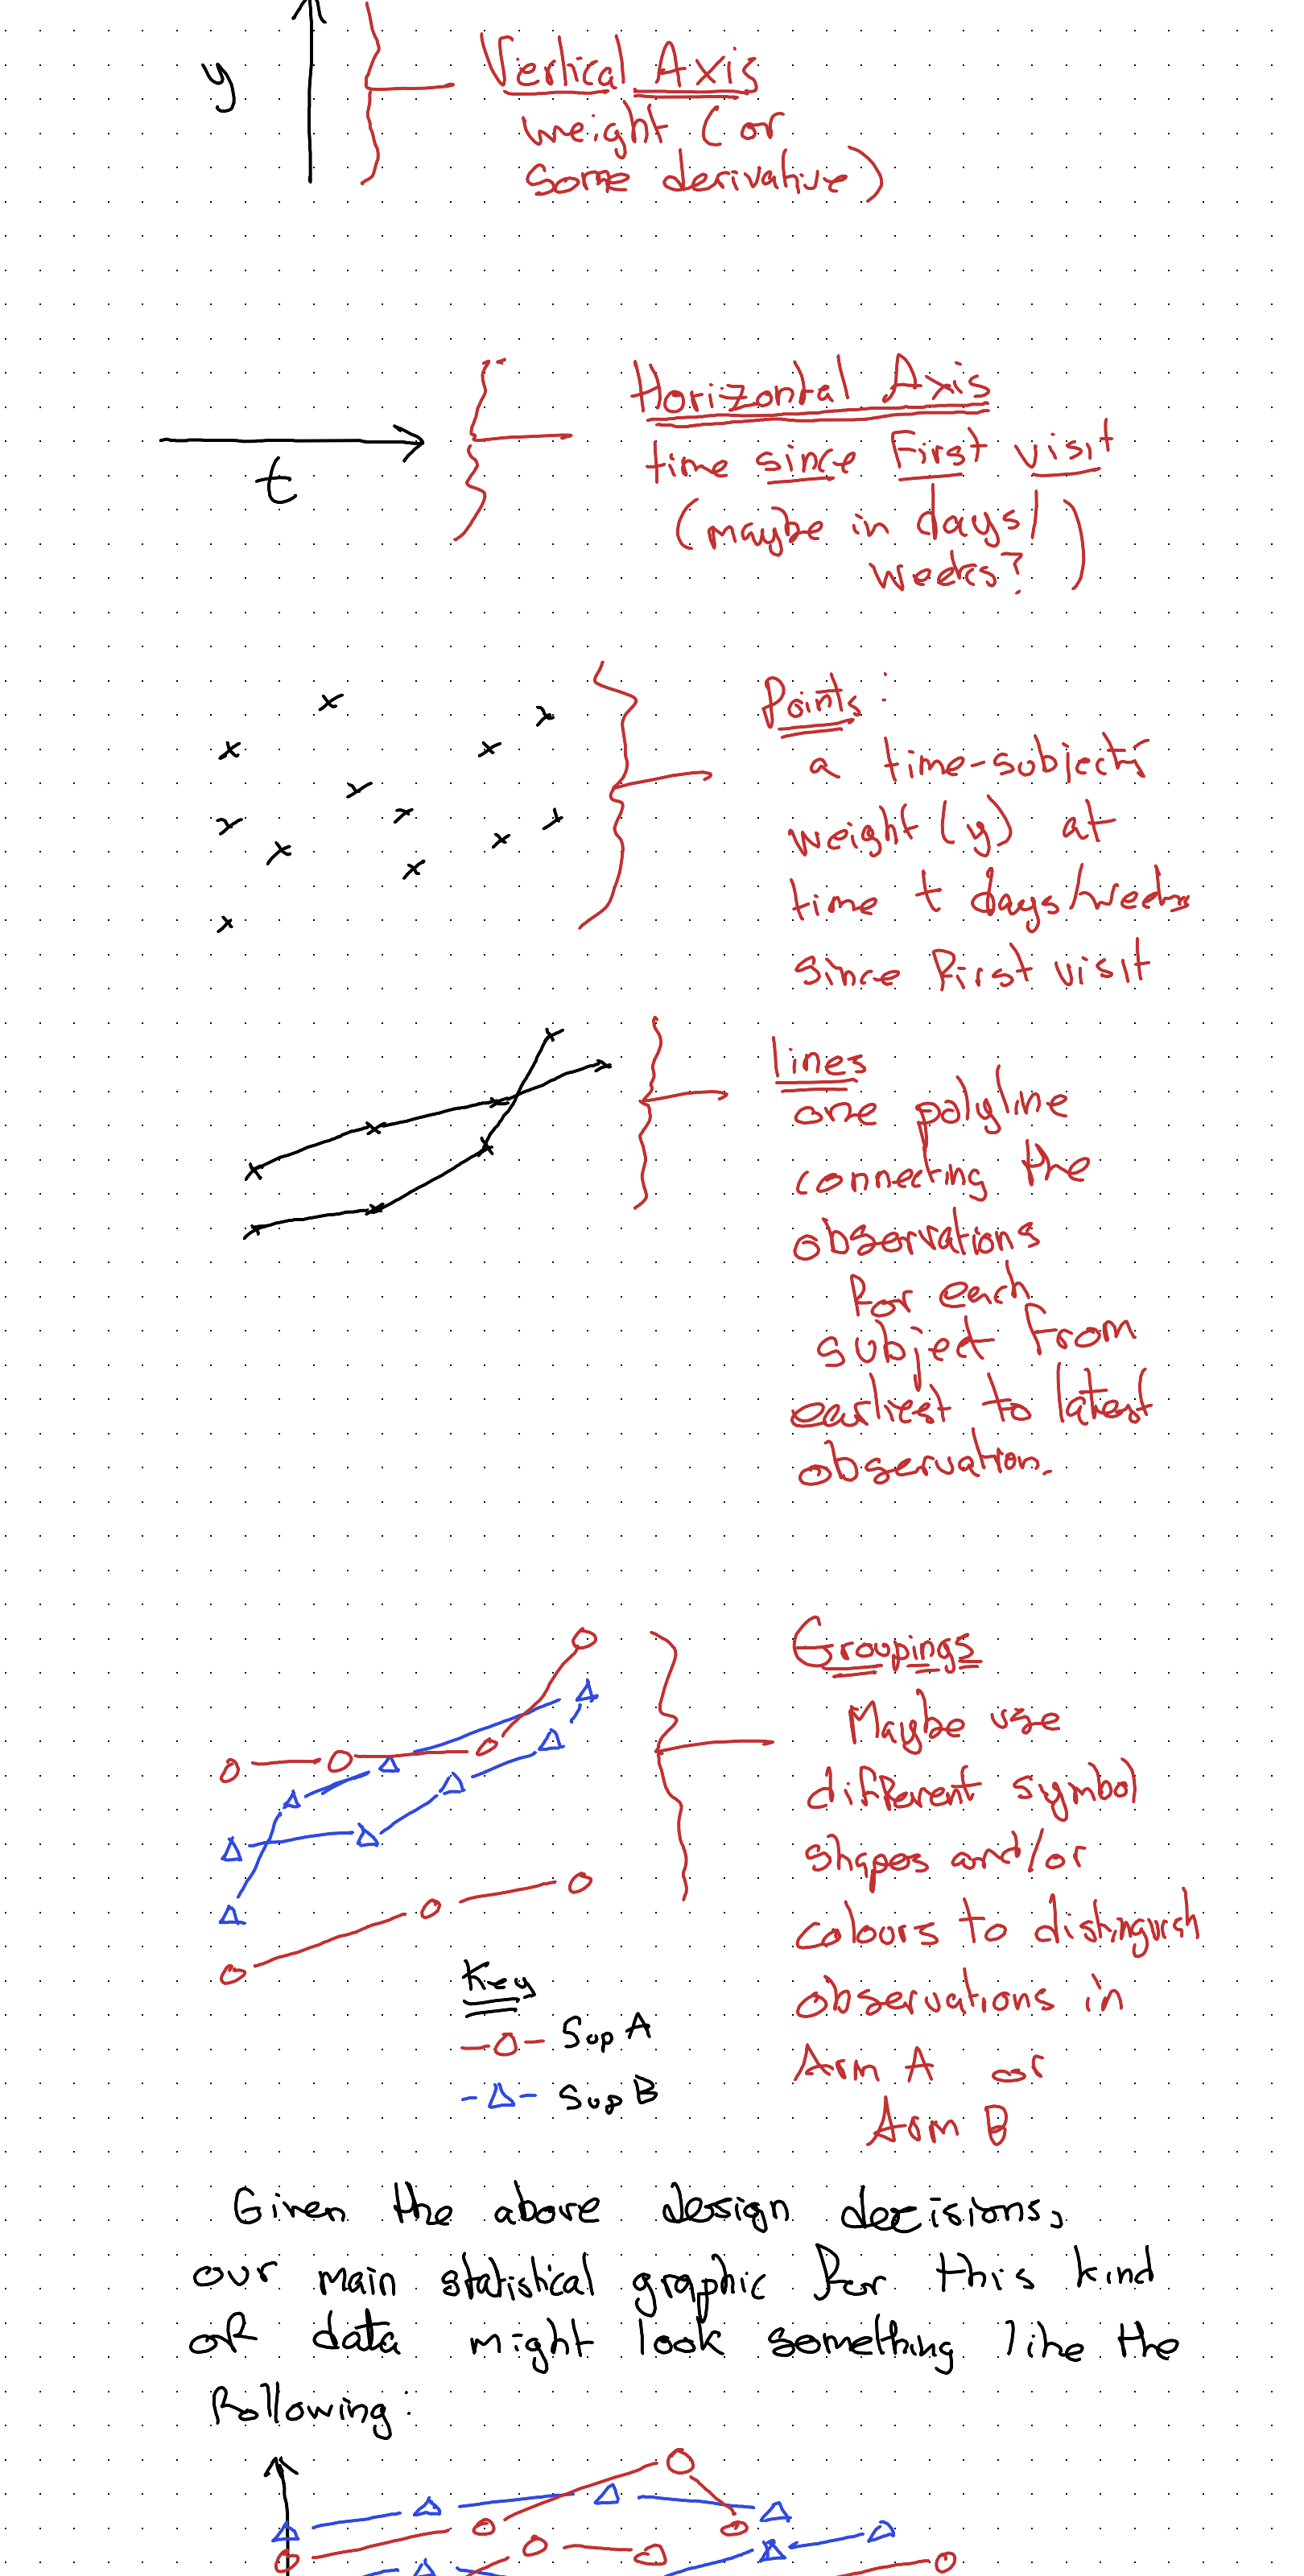 y
Vertical Axis
weight (or
some derivative)
t
Horizontal Axis
time since first visit
(maybe in days/
weeks?)
Points:
a time-subject's
weight (y) at
time t days/weeks
since first visit
lines
one polyline
connecting the
observations
for each
subject from
earliest to latest
observation.
Groupings
Maybe use
different symbol
shapes and/or
colours to distinguish
observations in
Arm A or
Arm B
Key
Sup A
Sup B
Given the above design decisions,
our main statistical graphic for this kind
of data might look something like the
following: